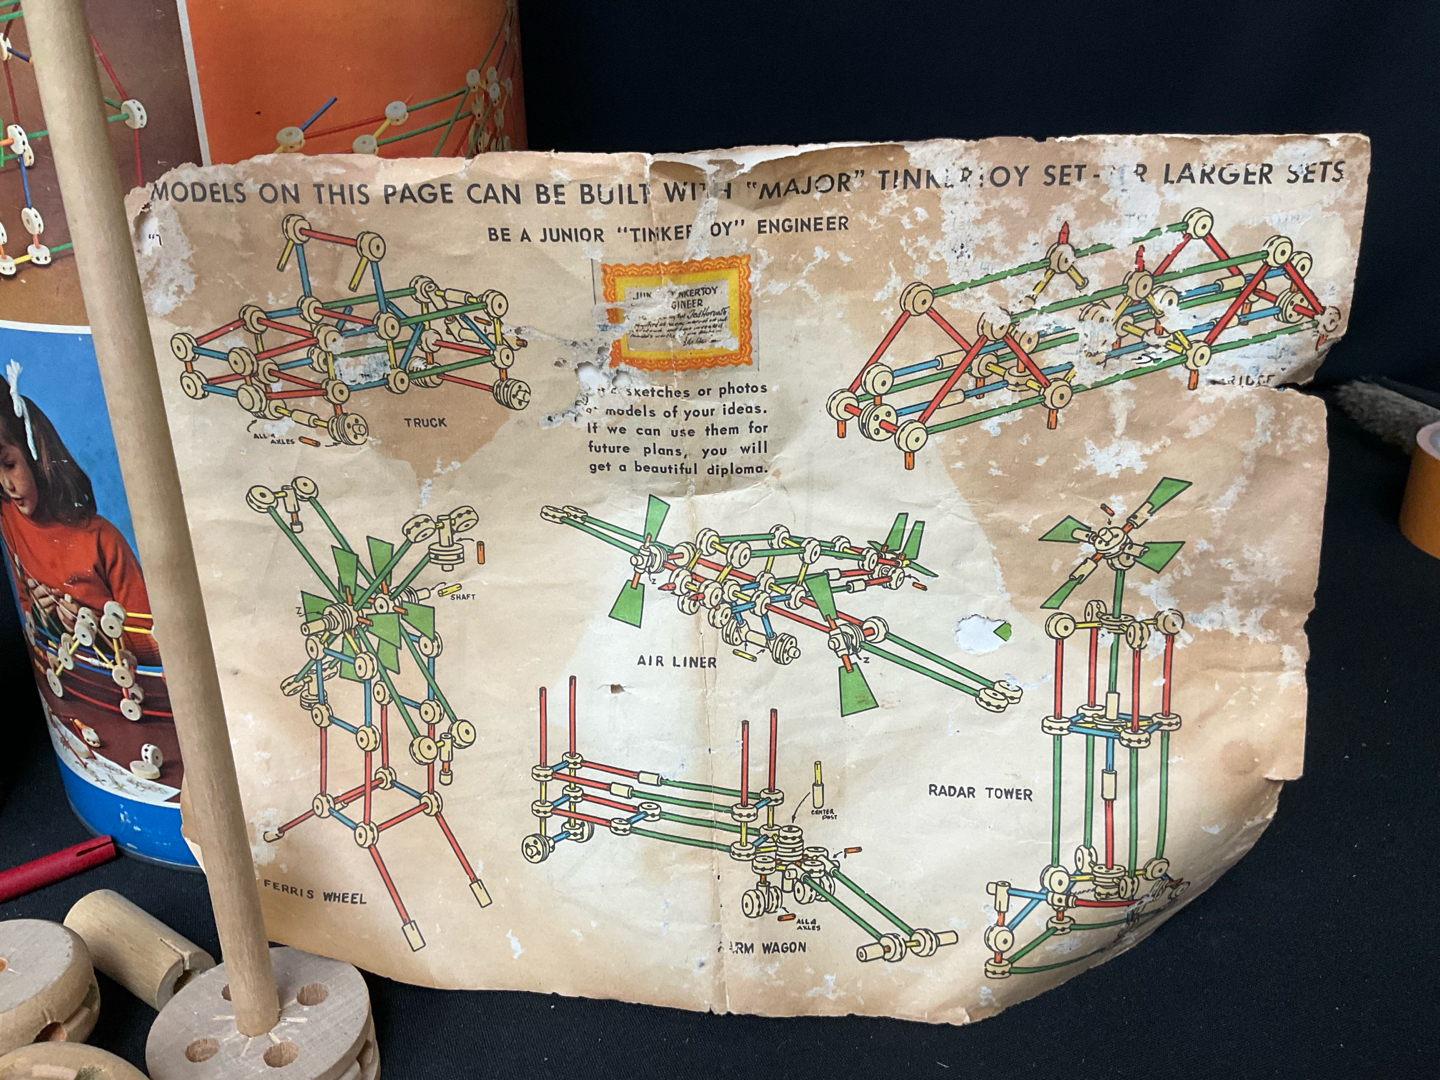 MODELS ON THIS PAGE CAN BE BUILT WITH "MAJOR" TINKERTOY SET - OR LARGER SETS
BE A JUNIOR "TINKERTOY" ENGINEER
sketches or photos
models of your ideas.
If we can use them for
future plans, you will
get a beautiful diploma.
TRUCK
ALL 4
AXLES
BRIDGE
SHAFT
Z
AIR LINER
Z
Z
RADAR TOWER
CENTER
POST
FERRIS WHEEL
ALL 4
AXLES
FARM WAGON